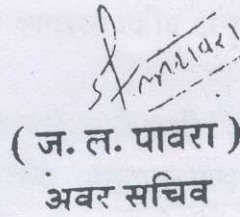 ( ज. ल. पावरा )
अवर सचिव